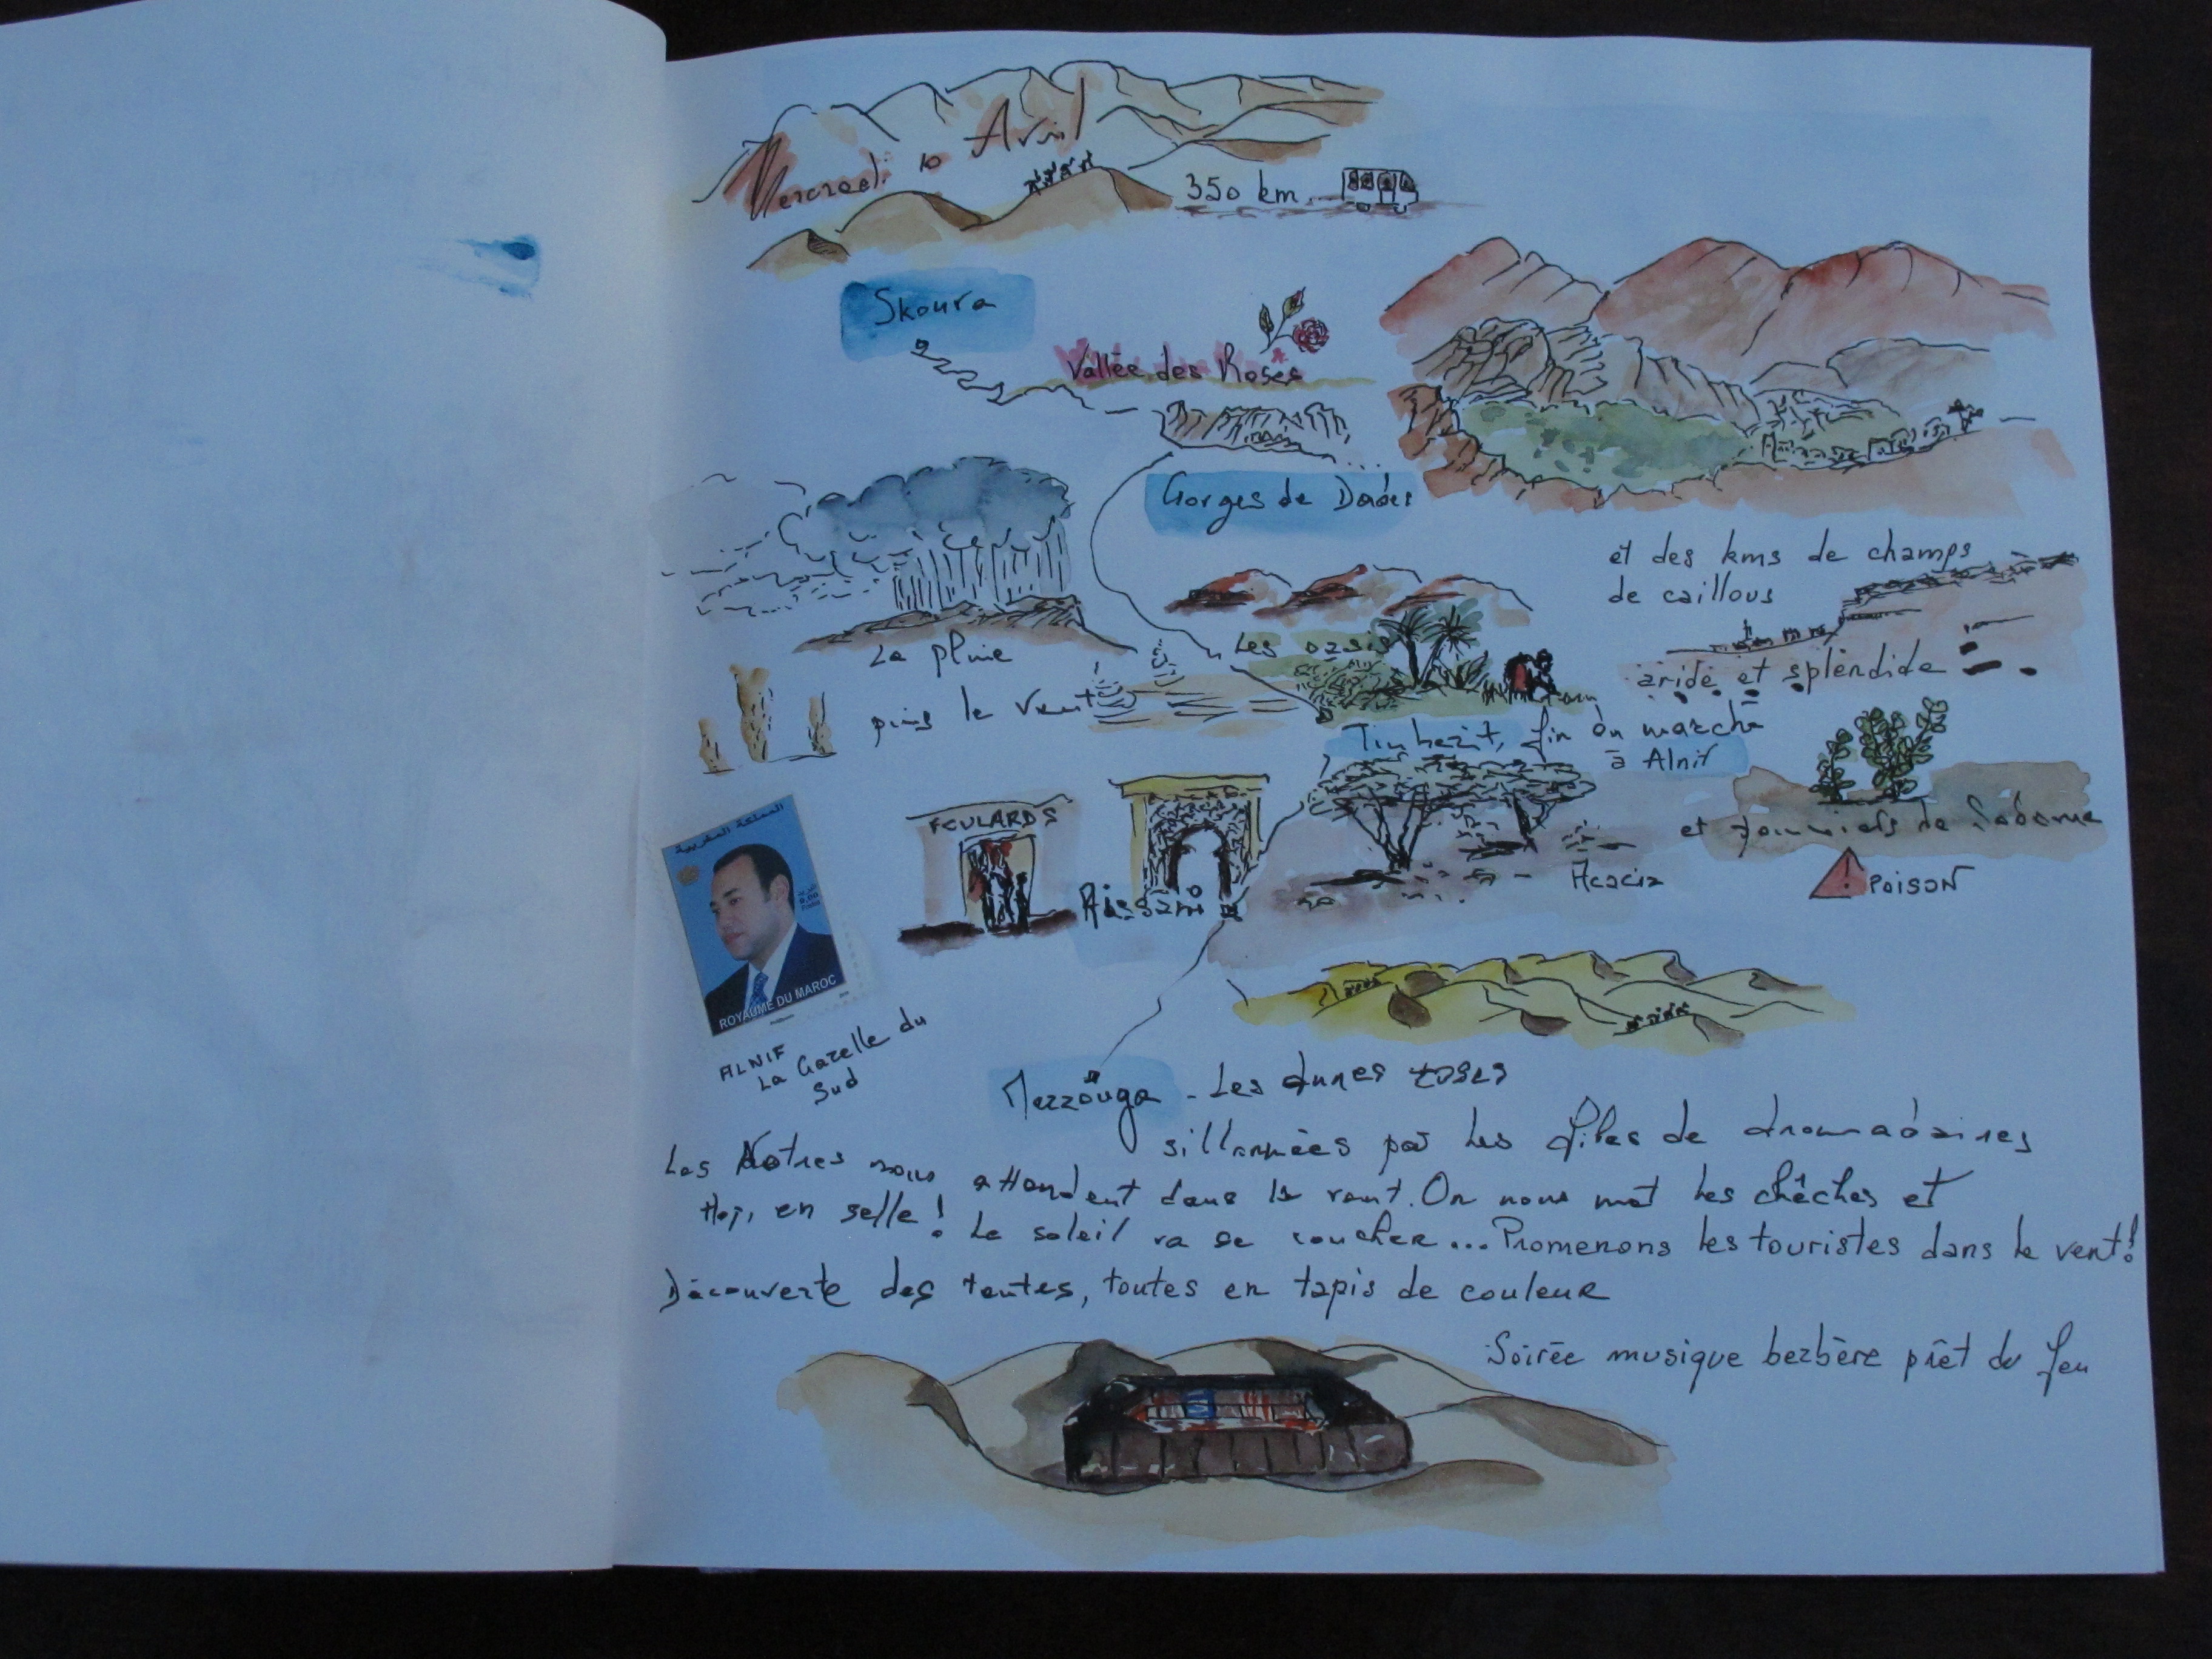 Mercredi 10 Avril
350 km
Skoura
Vallée des Roses
Gorges de Dadès
et des kms de champs
de caillous
aride et splendide
La pluie
puis le vent
Les oasis
on marche
à Alnif
FOULARDS
Rissani
Acacia
et de Sodome
POISON
المملكة المغربية
ROYAUME DU MAROC
ALNIF
La Gazelle du
Sud
Merzouga - Les dunes roses
sillonnées par les files de dromadaires
Les Notres nous attendent dans le vent. On nous met les chêches et
Hop, en selle! Le soleil va se coucher... Promenons les touristes dans le vent!
Découverte des tentes, toutes en tapis de couleur
Soirée musique berbère prêt du feu